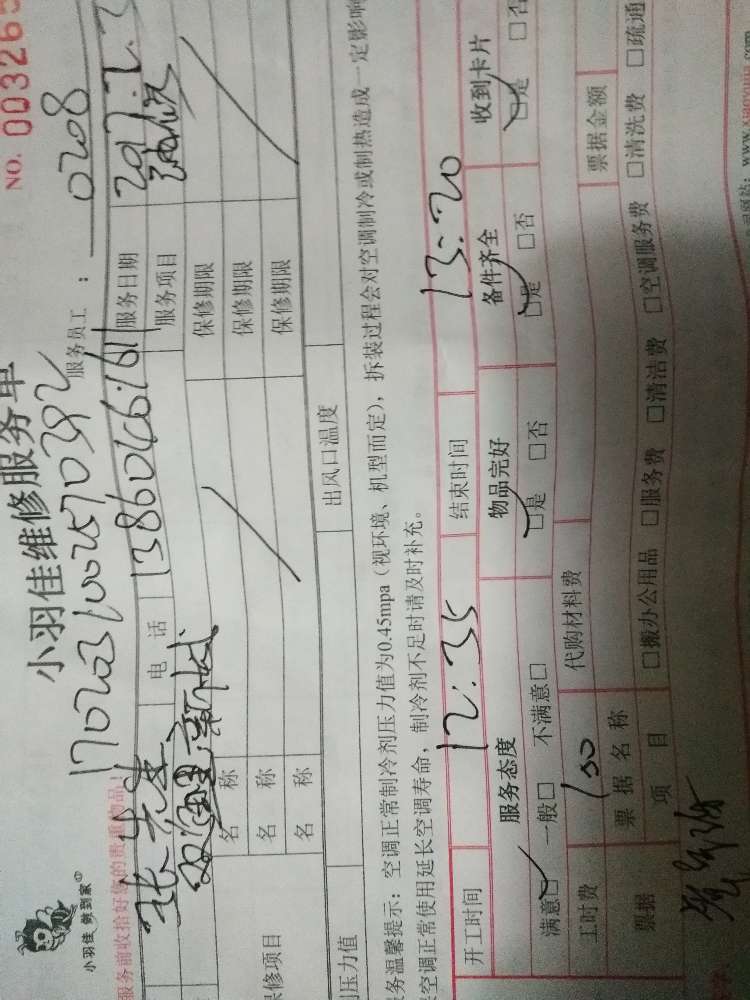 NO. 003265
小羽佳维修服务单
小羽佳 做到家
1702031002570392
服务员工: 0208
服务前收拾好您的贵重物品!
张先生 电 话 13860461611 服务日期 2017.2.3
服务项目
名 称 保修期限
名 称 保修期限
修项目 名 称 保修期限
压力值 出风口温度
务温馨提示:空调正常制冷剂压力值为0.45mpa(视环境、机型而定),拆装过程会对空调制冷或制热造成一定影响
空调正常使用延长空调寿命,制冷剂不足时请及时补充。
开工时间 12:35 结束时间 13:20
服务态度 物品完好 备件齐全 收到卡片
满意□ 一般□ 不满意□ □是 □否 □是 □否 □是 □否
工时费 150 代购材料费
票据 票据名称 票据金额
项 目 □搬办公用品 □服务费 □清洁费 □空调服务费 □清洗费 □疏通